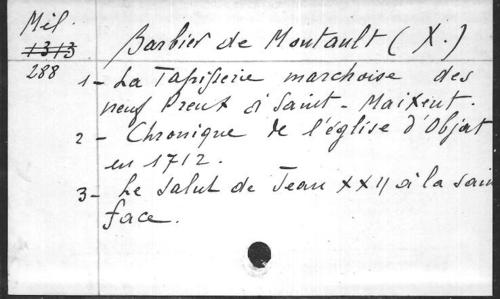 Mil.
1313
288
Barbier de Montault (X.)
1 - La Tapisserie marchoise des
neuf Preux à Saint-Maixent.
2 - Chronique de l'église d'Objat
en 1712.
3 - Le Salut de Jean XXII à la sain
face.